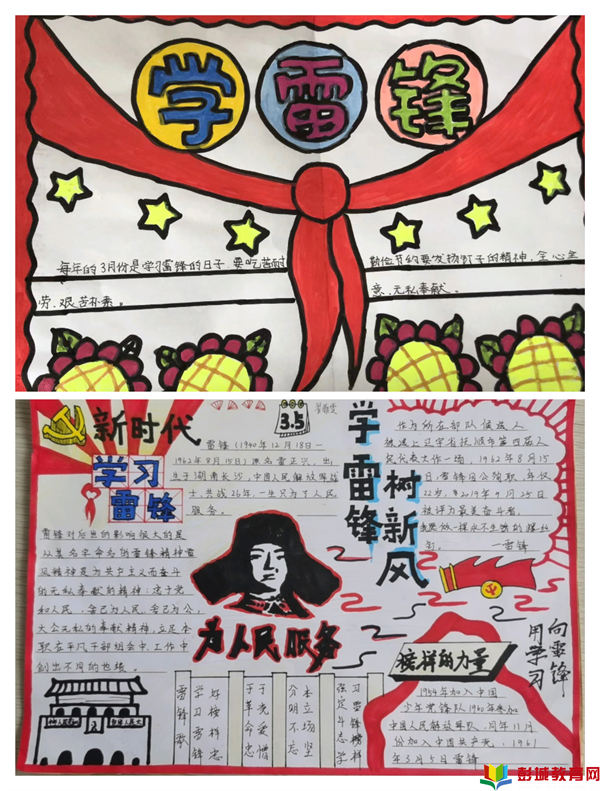 学雷锋
每年的3月份是学习雷锋的日子.要吃苦耐
劳、艰苦朴素。
勤俭节约要发扬钉子的精神,全心全
意、无私奉献.
新时代
学习
雷锋
3.5
雷锋(1940年12月18日一
1962年8月15日)原名雷正兴,出
生于湖南长沙,中国人民解放军战
士,共战26年,一生只为了人民
服务。
学雷锋
树新风
作为所在部队候选人
1962年8月15
22岁,2019年9月25日
被评为最美奋斗者,
一雷锋
雷锋对后世的影响极大的是
以其名字命名的雷锋精神雷
风精神是为共产主义而奋斗
的无私奉献的精神;忠于党
和人民,舍己为人民,舍己为公,
大公无私的奉献精神,立足本
创出不同的也绩。
为人民服务
雷锋歌
学习雷锋
好榜样忠
于革命忠
于党爱憎
分明不忘
本立场坚
强定斗志学
习雷锋榜样
榜样的力量
向雷锋
用学习
1954年加入中国
少年先锋队1960年参加
中国人民解放军队,同年11月
份加入中国共产党.1961
年3月5日雷锋
彭城教育网